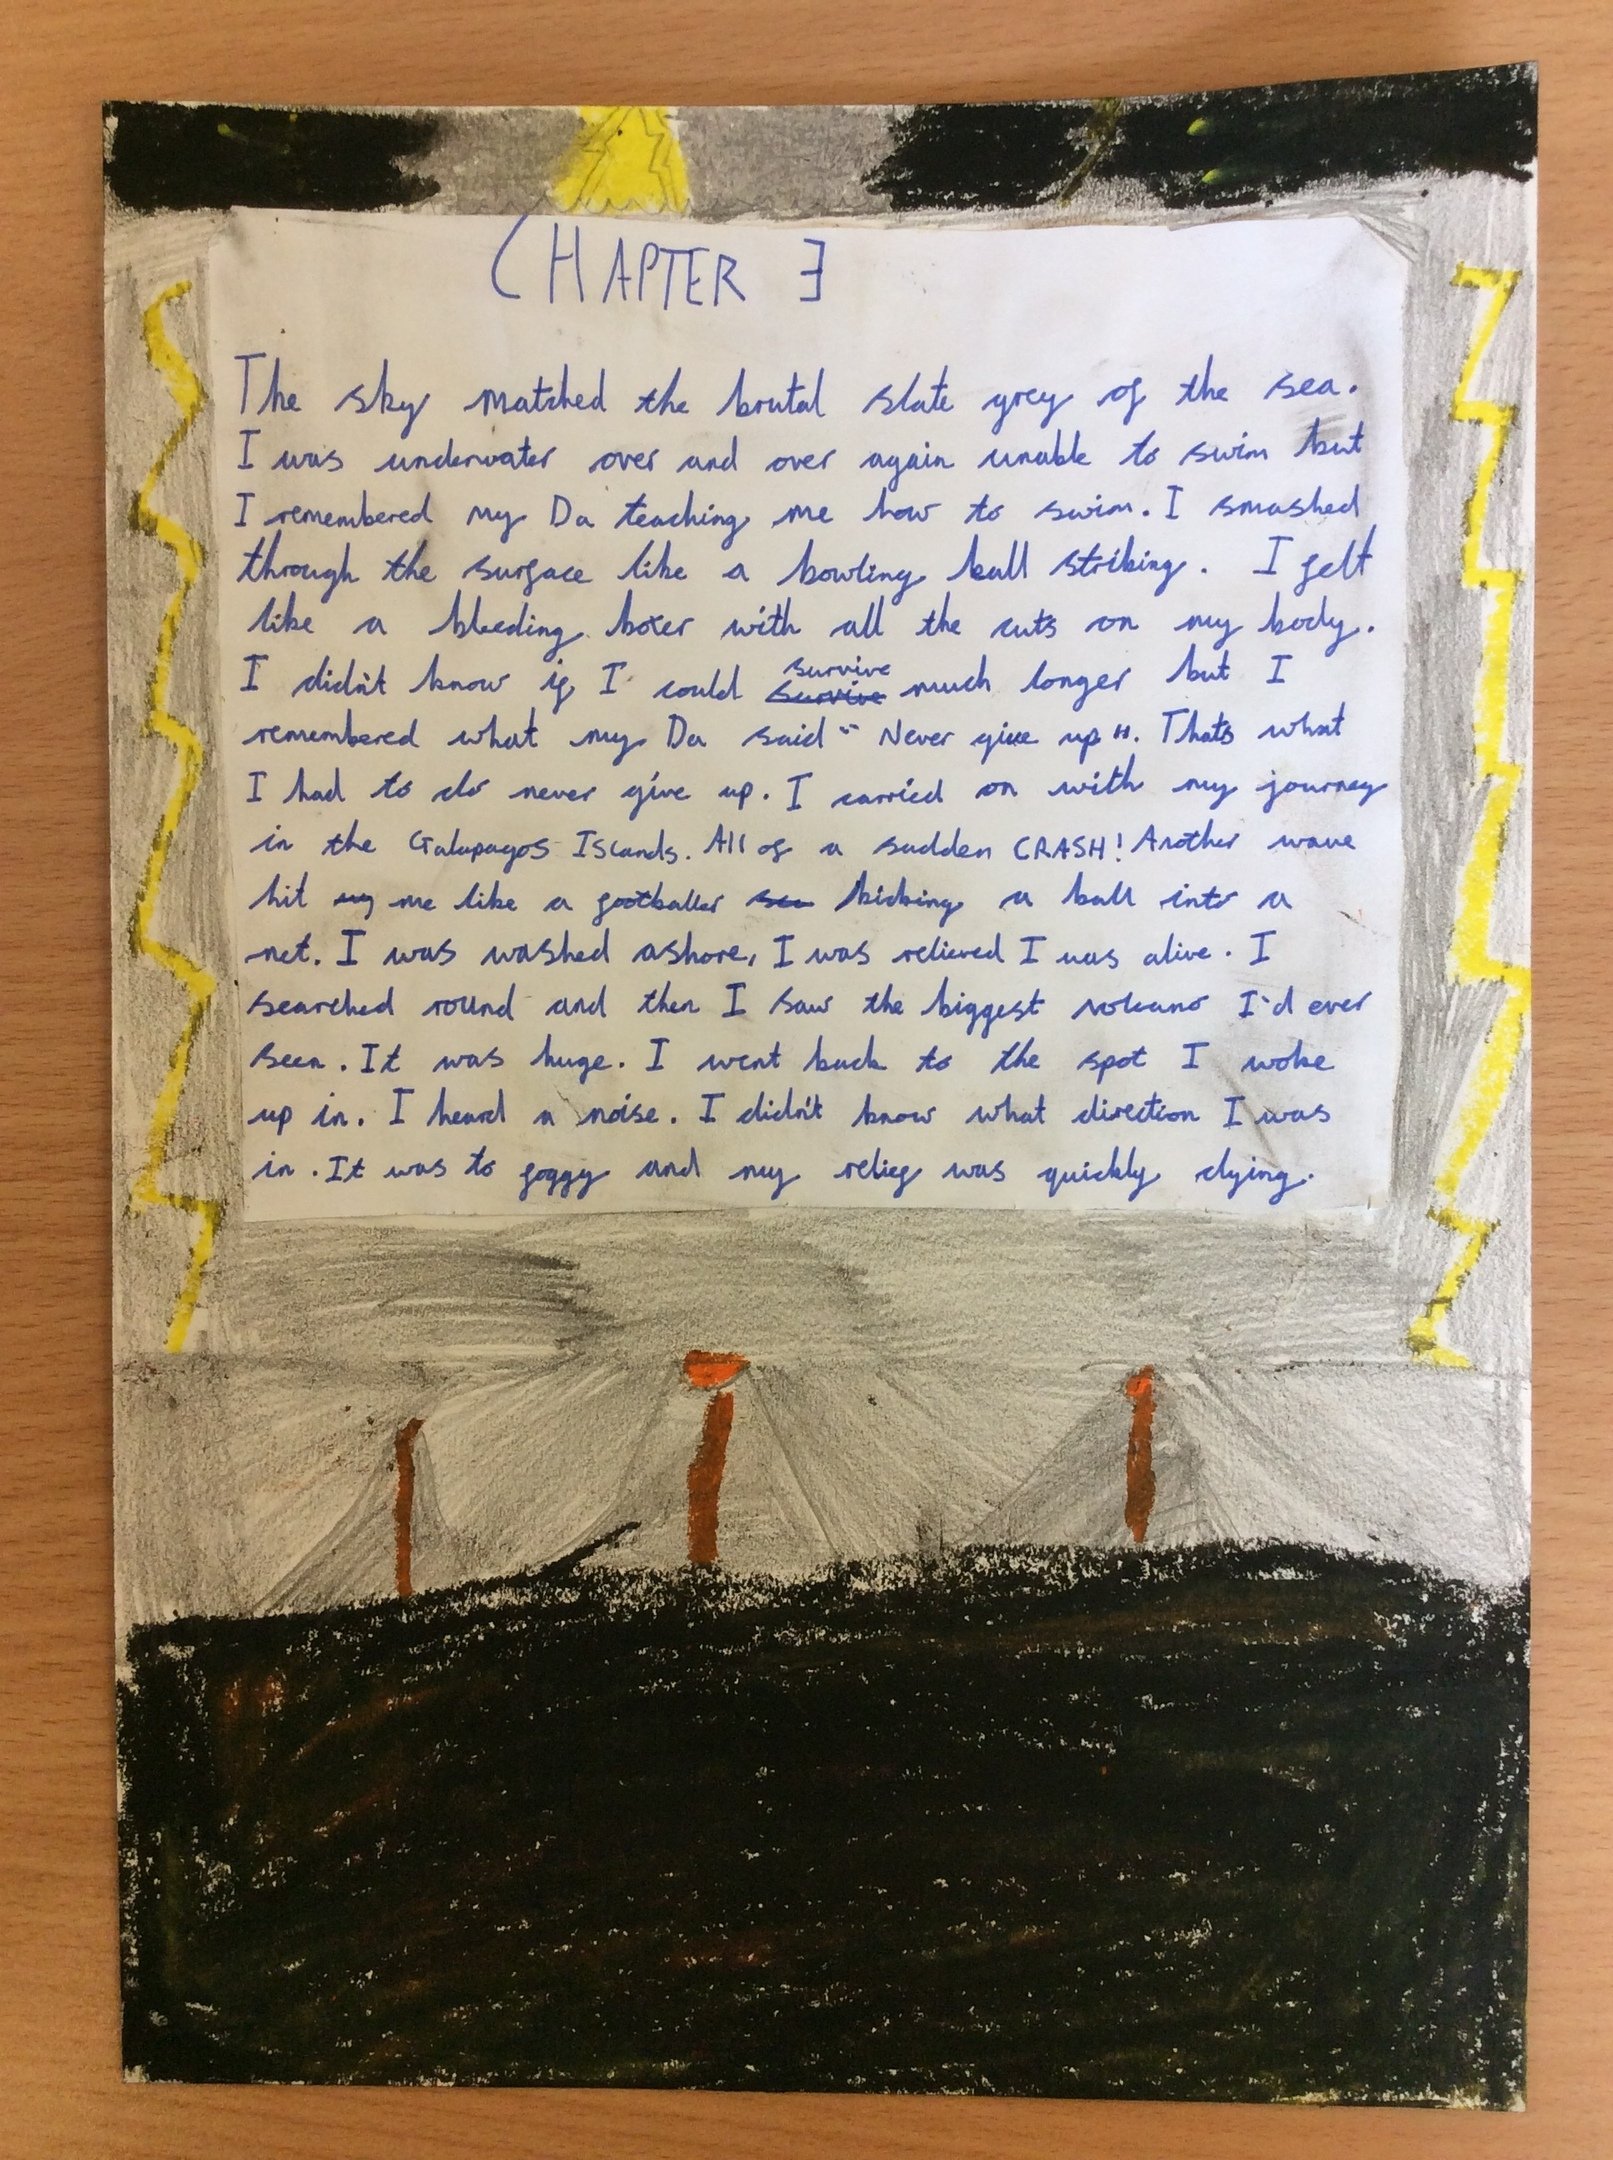 CHAPTER 3
The sky matched the brutal slate grey of the sea.
I was underwater over and over again unable to swim but
I remembered my Da teaching me how to swim. I smashed
through the surface like a bowling ball striking. I felt
like a bleeding boxer with all the cuts on my body.
I didn't know if I could survive much longer but I
remembered what my Da said " Never give up ". Thats what
I had to do never give up. I carried on with my journey
in the Galapagos Islands. All of a sudden CRASH! Another wave
hit me like a footballer kicking a ball into a
net. I was washed ashore, I was relieved I was alive. I
searched round and then I saw the biggest volcano I'd ever
seen. It was huge. I went back to the spot I woke
up in. I heard a noise. I didn't know what direction I was
in. It was to foggy and my relief was quickly dying.